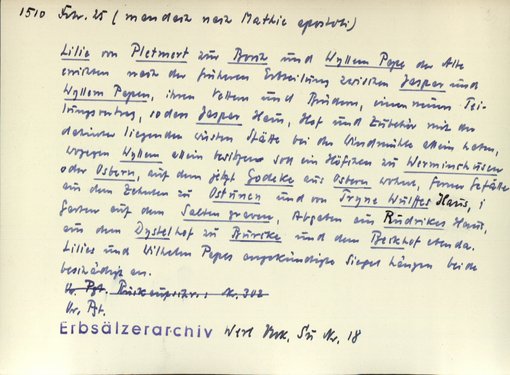 1510 Febr. 25 (mandach nach Mathie apostoli)
Lilie von Pletmert zur Borch und Wyllem Pape der Alte
errichten nach der früheren Erbteilung zwischen Jaspar und
Wyllem Papen, ihren Vettern und Brüdern, einen neuen Tei-
lungsvertrag, sodass Jaspar Haus, Hof und Zubehör mit der
dahinter liegenden wüsten Stätte bei der Windmühle allein haben,
wogegen Wyllem allein besitzen soll ein Höfchen zu Werminchusen
oder Ostern, auf dem jetzt Godeke aus Ostern wohnt, ferner Gefälle
aus dem Zehnten zu Ostunen und von Tryne Wulffes Haus, 1
Garten auf dem Salten graven, Abgaben aus Rudrikes Haus,
aus dem Dystelhof zu Burike und dem Berkhof ebenda.
Lilies und Wilhelm Papes angekündigte Siegel hängen beide
beschädigt an.
Or. Pgt. Rückaufschr.: N. 302
Or. Pgt.
Erbsälzerarchiv Werl Urk. Nr. 18